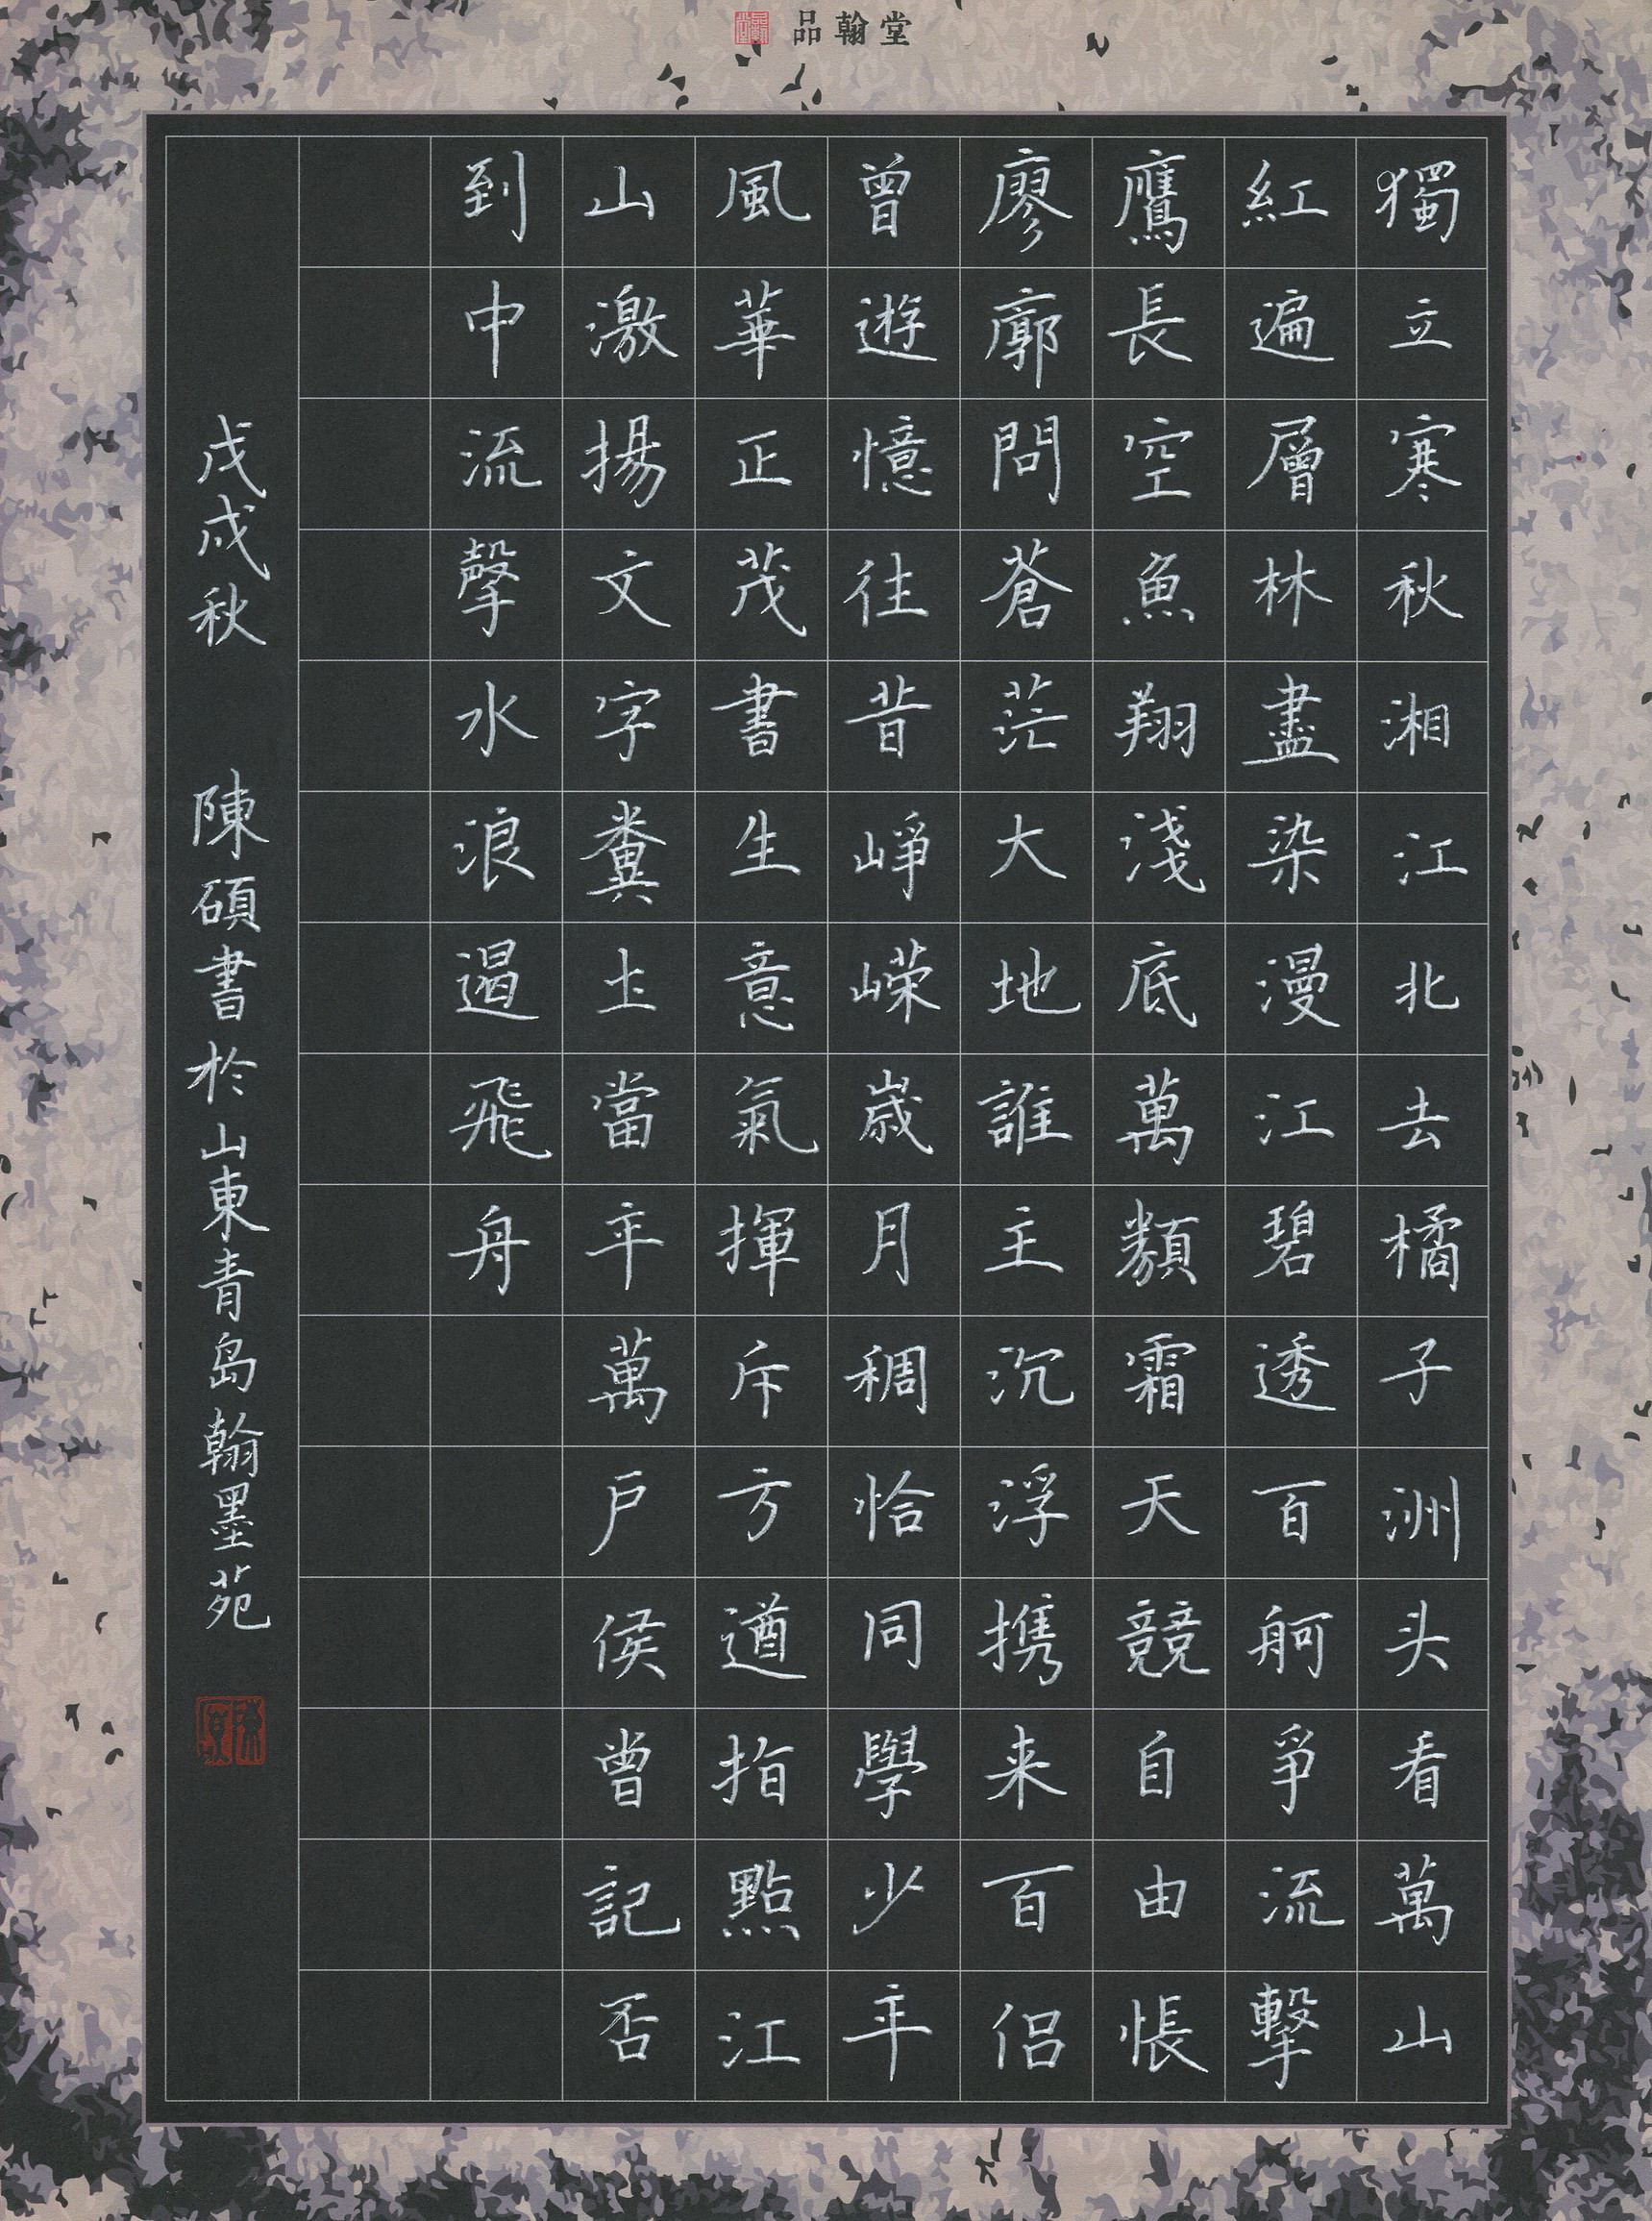 品翰堂
獨立寒秋湘江北去橘子洲头看萬山
紅遍層林盡染漫江碧透百舸爭流擊
鷹長空魚翔淺底萬類霜天競自由悵
廖廓問蒼茫大地誰主沉浮携来百侣
曾遊憶往昔崢嵘歲月稠恰同學少年
風華正茂書生意氣揮斥方遒指點江
山激揚文字糞土當年萬户侯曾記否
到中流擊水浪遏飛舟
戊戌秋 陳碩書於山東青岛翰墨苑